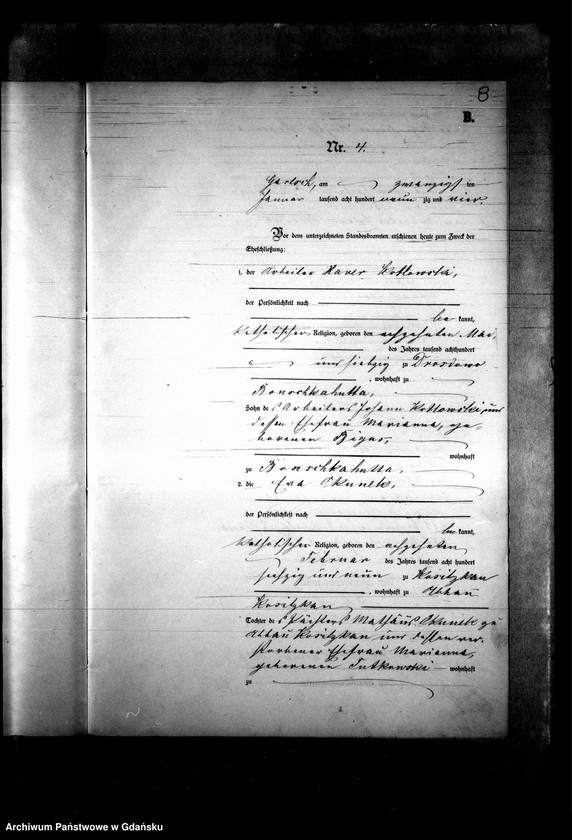 8
B.
Nr. 4.
am zwanzigsten
Januar tausend acht hundert neun zig und vier.
Vor dem unterzeichneten Standesbeamten erschienen heute zum Zweck der
Eheschließung:
1. der Arbeiter Xaver Kottowski,
der Persönlichkeit nach
be kannt,
katholischer Religion, geboren den achzehnten Mai,
des Jahres tausend achthundert
und siebzig zu
, wohnhaft zu
Bonschkahutta,
Sohn des Arbeiters Johann Kottowski und
dessen Ehefrau Marianna, ge-
borenen Bigus,
wohnhaft
zu Bonschkahutta.
2. die Eva Skunek,
der Persönlichkeit nach
be kannt,
katholischer Religion, geboren den achzehnten
Februar des Jahres tausend acht hundert
sechzig und neun zu
, wohnhaft zu Abbau
Tochter des Pächters Mathäus Skunek zu
Abbau und dessen ver-
storbener Ehefrau Marianna,
geborenen Tutkowski wohnhaft
zu
Archiwum Państwowe w Gdańsku